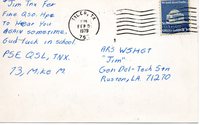 "Jim Tnx for
Fine QSO. Hpe
to Hear You
again sometime.
Gud-luck in school.
PSE QSL, TNX.
73, Mike M.
TYLER, TX
PM
1979
75
AR5 W5MGT
"Jim"
Gen Del - Tech Stn
Ruston, LA. 71270